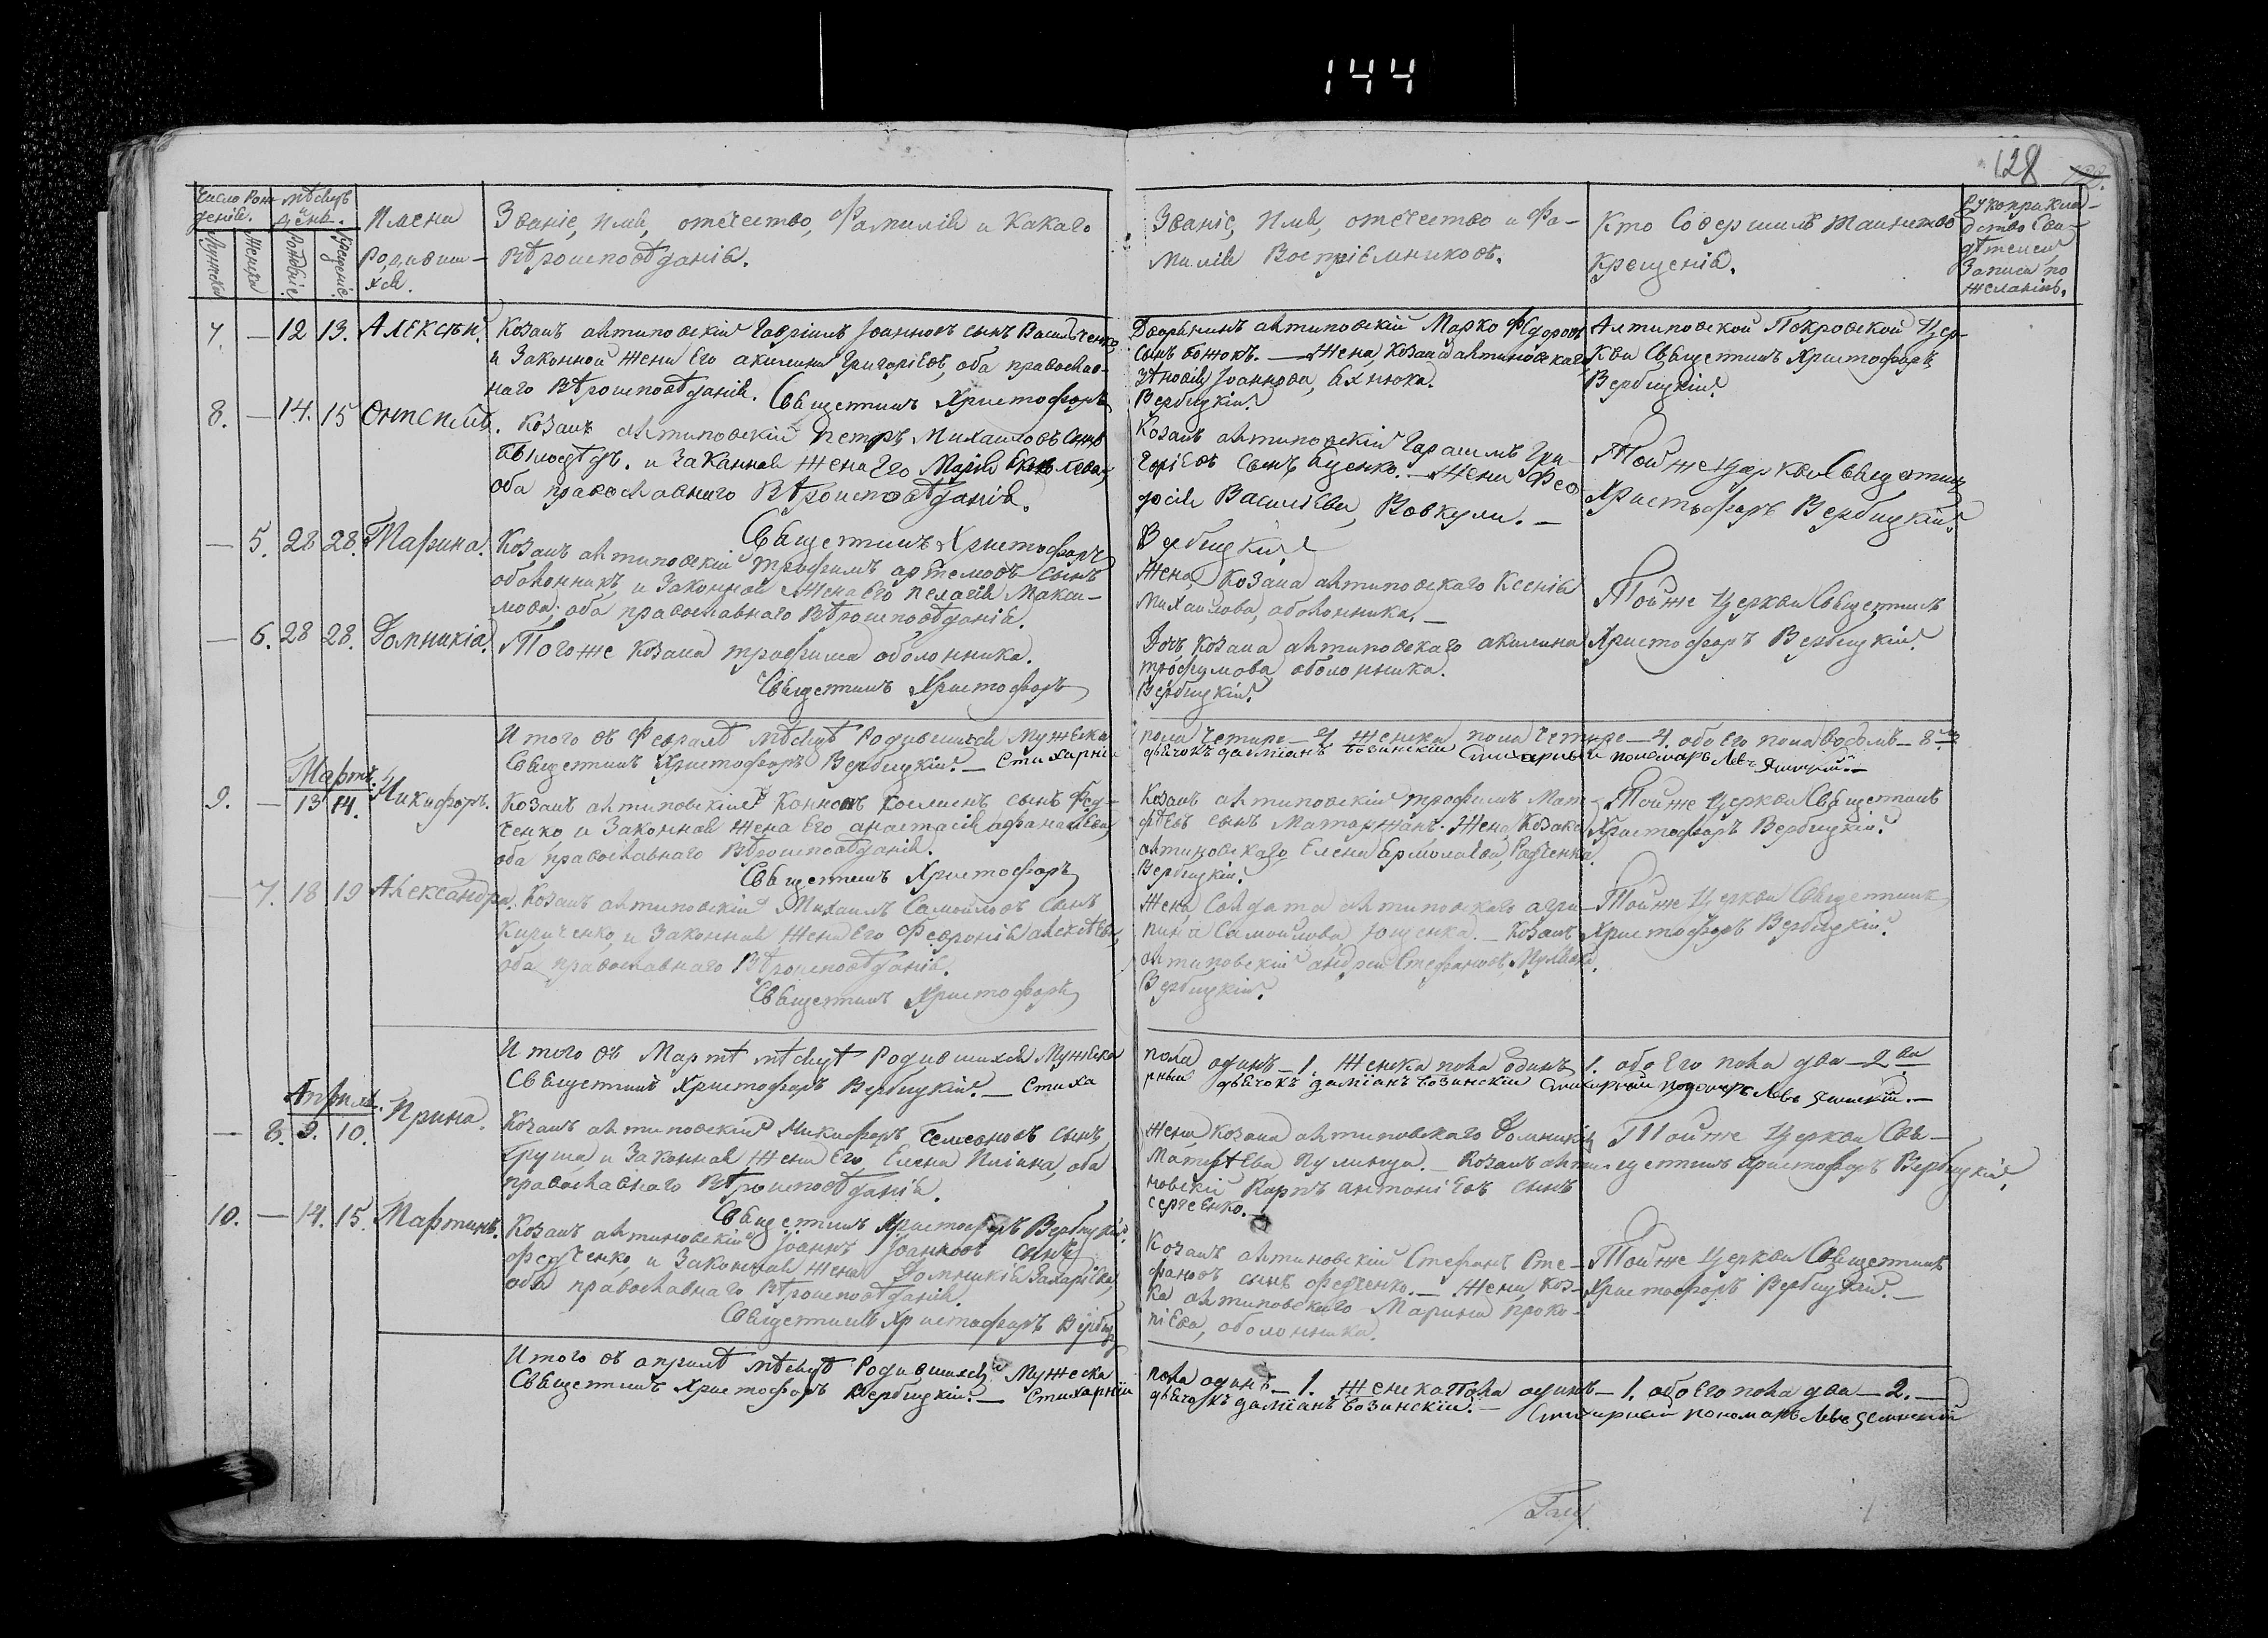 144
128
Число Рож-
денія.
Мѣсяцъ
и
день.
Мужеска
Женска
Рожденіе.
Крещеніе.
Имена
Родивши-
хся.
Званіе, Имя, отечество, Фамилія и Какаго
Вѣроисповѣданія.
Званіе, Имя, отечество и Фа-
милія Воспріемниковъ.
Кто Совершилъ таинство
Крещенія.
Рукоприкла-
дство Сви-
дѣтелей
Записи по
желанію.
7. — 12 13. Алексѣй.
Козакъ антиповскій Гавріилъ Іоанновъ сынъ Васильченко,
и Законной жени Его акилини Григоріева, оба православ-
наго Вѣроисповѣданія. Священникъ Христофоръ
Дворянинъ антиповскій Марко Федоровъ
сынъ божокъ. — Жена, козака антиповскаго
Зѣновія Іоаннова, бахнюка.
Вербицкій.
Антиповской Покровской Цер-
кви Священникъ Христофоръ
Вербицкій.
8. — 14. 15
Козакъ антиповскій Петръ Михаиловъ сынъ
и Законная жена Его Марія
оба православнаго Вѣроисповѣданія.
Священникъ Христофоръ
Козакъ антиповскій Гарасимъ Гри-
горіевъ сынъ Яценко. — Жени Фео
досія Василіева, Вовкули. —
Вербицкій.
Той же Церкви Священникъ
Христофоръ Вербицкій.
— 5. 28 28. Марина.
Козакъ антиповскій трофимъ артемовъ сынъ
оболонникъ, и Законной Жена Его Пелагія Макси-
мова; оба православнаго Вѣроисповѣданія.
Жена, Козака антиповскаго Ксенія
Михаилова, оболонника. —
Той же Церкви Священникъ
Христофоръ Вербицкій.
— 6. 28 28. Домникія.
Того же козака трофима оболонника.
Священникъ Христофоръ
Дочь козака антиповскаго акилина
трофимова оболонника.
Вербицкій.
Итого въ Февралѣ мѣсяцѣ Родившихся Мужеска
Священникъ Христофоръ Вербицкій. — Стихарній
пола четире — 4 женска пола четире — 4. обоего пола восѣмъ — 8
дьячокъ даміанъ возинскій Стихарный пономарь Левъ
Мартъ.
9. — 13 14. Никифоръ.
Козакъ антиповскій Кононъ Косминъ сынъ Фед-
ченко и Законная Жена Его анастасія афанасіева,
оба православнаго Вѣроисповѣданія.
Священникъ Христофоръ
Козакъ антиповскій трофимъ Мат-
фѣевъ сынъ Матаржанъ. Жена, Козака
антиповскаго Елена Ермолаева, Радченка.
Вербицкій.
Той же Церкви Священникъ
Христофоръ Вербицкій.
— 7. 18 19 Александра.
Козакъ антиповскій Михаилъ Самойловъ сынъ
Кириченко, и Законная Жена Его Февронія алексѣева,
оба православнаго Вѣроисповѣданія.
Священникъ Христофоръ
Жена Солдата антиповскаго агри-
пина Самойлова Ющенка. — Козакъ
антиповскій андрей Стефановъ,
Вербицкій.
Той же Церкви Священникъ
Христофоръ Вербицкій.
Итого въ Мартѣ мѣсяцѣ Родившихся Мужеска
Священникъ Христофоръ Вербицкій. — Стиха
пола одинъ — 1. Женска пола одинъ 1. обоего пола два — 2 ва
рный дьячокъ даміанъ возинскій Стихарный пономарь Левъ
Апрѣль.
— 8. 9. 10. Ирина.
Козакъ антиповскій Никифоръ Семеоновъ сынъ,
Груша и Законная Жена Его Елена Иліина, оба
православнаго Вѣроисповѣданія.
Священникъ Христофоръ Вербицкій.
Жени, козака антиповскаго Домникія
Матфѣева, Пулинца. — Козакъ анти-
повскій Карпъ антоніевъ сынъ
сергеенко. —
Той же Церкви Свя-
щенникъ Христофоръ Вербицкій.
10. — 14. 15. Мартинъ.
Козакъ антиповскій Іоаннъ Іоанновъ сынъ
Федченко, и Законная Жена Домникія Захаріева,
оба православнаго Вѣроисповѣданія.
Священникъ Христофоръ Вербиц
Козакъ антиповскій Стефанъ Сте-
фановъ сынъ Федченко. — Жена, Коза-
ка антиповскаго Марина Проко-
піева, оболонника.
Той же Церкви Священникъ
Христофоръ Вербицкій. —
Итого въ апрѣлѣ мѣсяцѣ Родившихся Мужеска
Священникъ Христофоръ Вербицкій. — Стихарній
пола одинъ — 1. Женска Пола одинъ — 1. обоего пола два — 2. —
дьячокъ даміанъ возинскій. — Стихарный пономарь Левъ